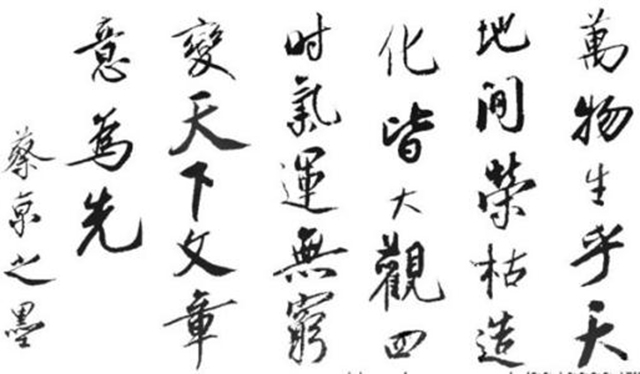 萬物生乎天
地間榮枯造
化皆大觀四
时氣運無窮
變天下文章
意為先
蔡京之墨